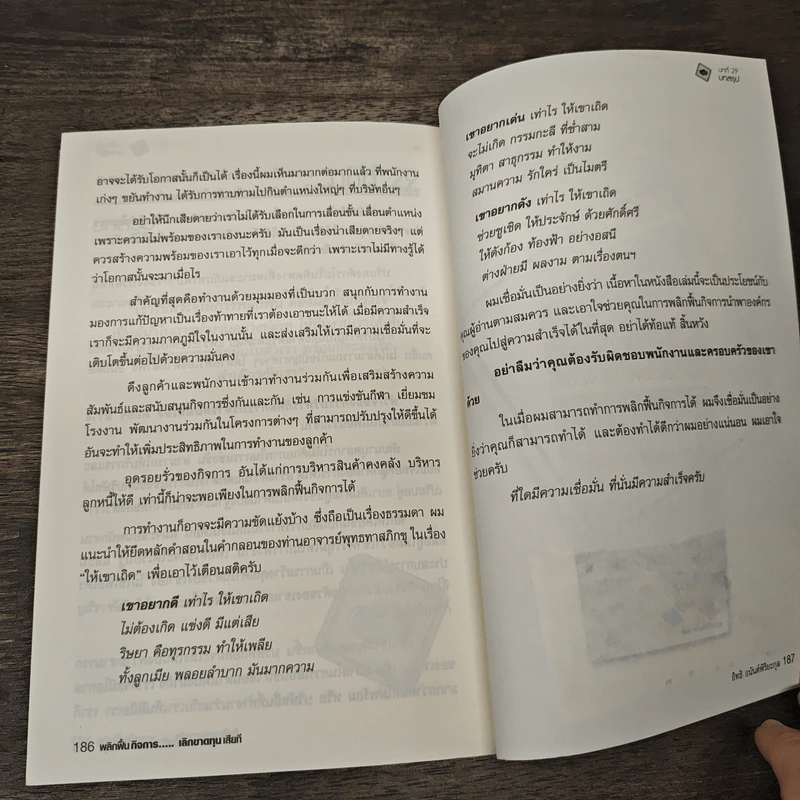 อาจจะได้รับโอกาสนั้นก็เป็นได้ เรื่องนี้ผมเห็นมามากต่อมากแล้ว ที่พนักงาน
เก่งๆ ขยันทำงาน ได้รับการทาบทามไปกินตำแหน่งใหญ่ๆ ที่บริษัทอื่นๆ
อย่าให้นึกเสียดายว่าเราไม่ได้รับเลือกในการเลื่อนขั้น เลื่อนตำแหน่ง
เพราะความไม่พร้อมของเราเองนะครับ มันเป็นเรื่องน่าเสียดายจริงๆ แต่
ควรสร้างความพร้อมของเราเอาไว้ทุกเมื่อจะดีกว่า เพราะเราไม่มีทางรู้ได้
ว่าโอกาสนั้นจะมาเมื่อไร
สำคัญที่สุดคือทำงานด้วยมุมมองที่เป็นบวก สนุกกับการทำงาน
มองการแก้ปัญหาเป็นเรื่องท้าทายที่เราต้องเอาชนะให้ได้ เมื่อมีความสำเร็จ
เราก็จะมีความภาคภูมิใจในงานนั้น และส่งเสริมให้เรามีความเชื่อมั่นที่จะ
เติบโตขึ้นต่อไปด้วยความมั่นคง
ดึงลูกค้าและพนักงานเข้ามาทำงานร่วมกันเพื่อเสริมสร้างความ
สัมพันธ์และสนับสนุนกิจการซึ่งกันและกัน เช่น การแข่งขันกีฬา เยี่ยมชม
โรงงาน พัฒนางานร่วมกันในโครงการต่างๆ ที่สามารถปรับปรุงให้ดีขึ้นได้
อันจะทำให้เพิ่มประสิทธิภาพในการทำงานของลูกค้า
อุดรอยรั่วของกิจการ อันได้แก่การบริหารสินค้าคงคลัง บริหาร
ลูกหนี้ให้ดี เท่านี้ก็น่าจะพอเพียงในการพลิกฟื้นกิจการได้
การทำงานก็อาจจะมีความขัดแย้งบ้าง ซึ่งถือเป็นเรื่องธรรมดา ผม
แนะนำให้ยึดหลักคำสอนในคำกลอนของท่านอาจารย์พุทธทาสภิกขุ ในเรื่อง
“ให้เขาเถิด” เพื่อเอาไว้เตือนสติครับ
เขาอยากดี เท่าไร ให้เขาเถิด
ไม่ต้องเกิด แข่งดี มีแต่เสีย
ริษยา คือทุรกรรม ทำให้เพลีย
ทั้งลูกเมีย พลอยลำบาก มันมากความ
186 พลิกฟื้น กิจการ..... เลิกขาดทุน เสียที
บทที่ 29
บทสรุป
เขาอยากเด่น เท่าไร ให้เขาเถิด
จะไม่เกิด กรรมกะลี ที่ซ้ำสาม
มุทิตา สาธุกรรม ทำให้งาม
สมานความ รักใคร่ เป็นไมตรี
เขาอยากดัง เท่าไร ให้เขาเถิด
ช่วยชูเชิด ให้ประจักษ์ ด้วยศักดิ์ศรี
ให้ดังก้อง ท้องฟ้า อย่างอสนี
ต่างฝ่ายมี ผลงาม ตามเรื่องตนฯ
ผมเชื่อมั่นเป็นอย่างยิ่งว่า เนื้อหาในหนังสือเล่มนี้จะเป็นประโยชน์กับ
คุณผู้อ่านตามสมควร และเอาใจช่วยคุณในการพลิกฟื้นกิจการนำพาองค์กร
ของคุณไปสู่ความสำเร็จได้ในที่สุด อย่าได้ท้อแท้ สิ้นหวัง
อย่าลืมว่าคุณต้องรับผิดชอบพนักงานและครอบครัวของเขา
ด้วย
ในเมื่อผมสามารถทำการพลิกฟื้นกิจการได้ ผมจึงเชื่อมั่นเป็นอย่าง
ยิ่งว่าคุณก็สามารถทำได้ และต้องทำได้ดีกว่าผมอย่างแน่นอน ผมเอาใจ
ช่วยครับ
ที่ใดมีความเชื่อมั่น ที่นั่นมีความสำเร็จครับ
อิทธิ อนันต์พิริยะกุล 187